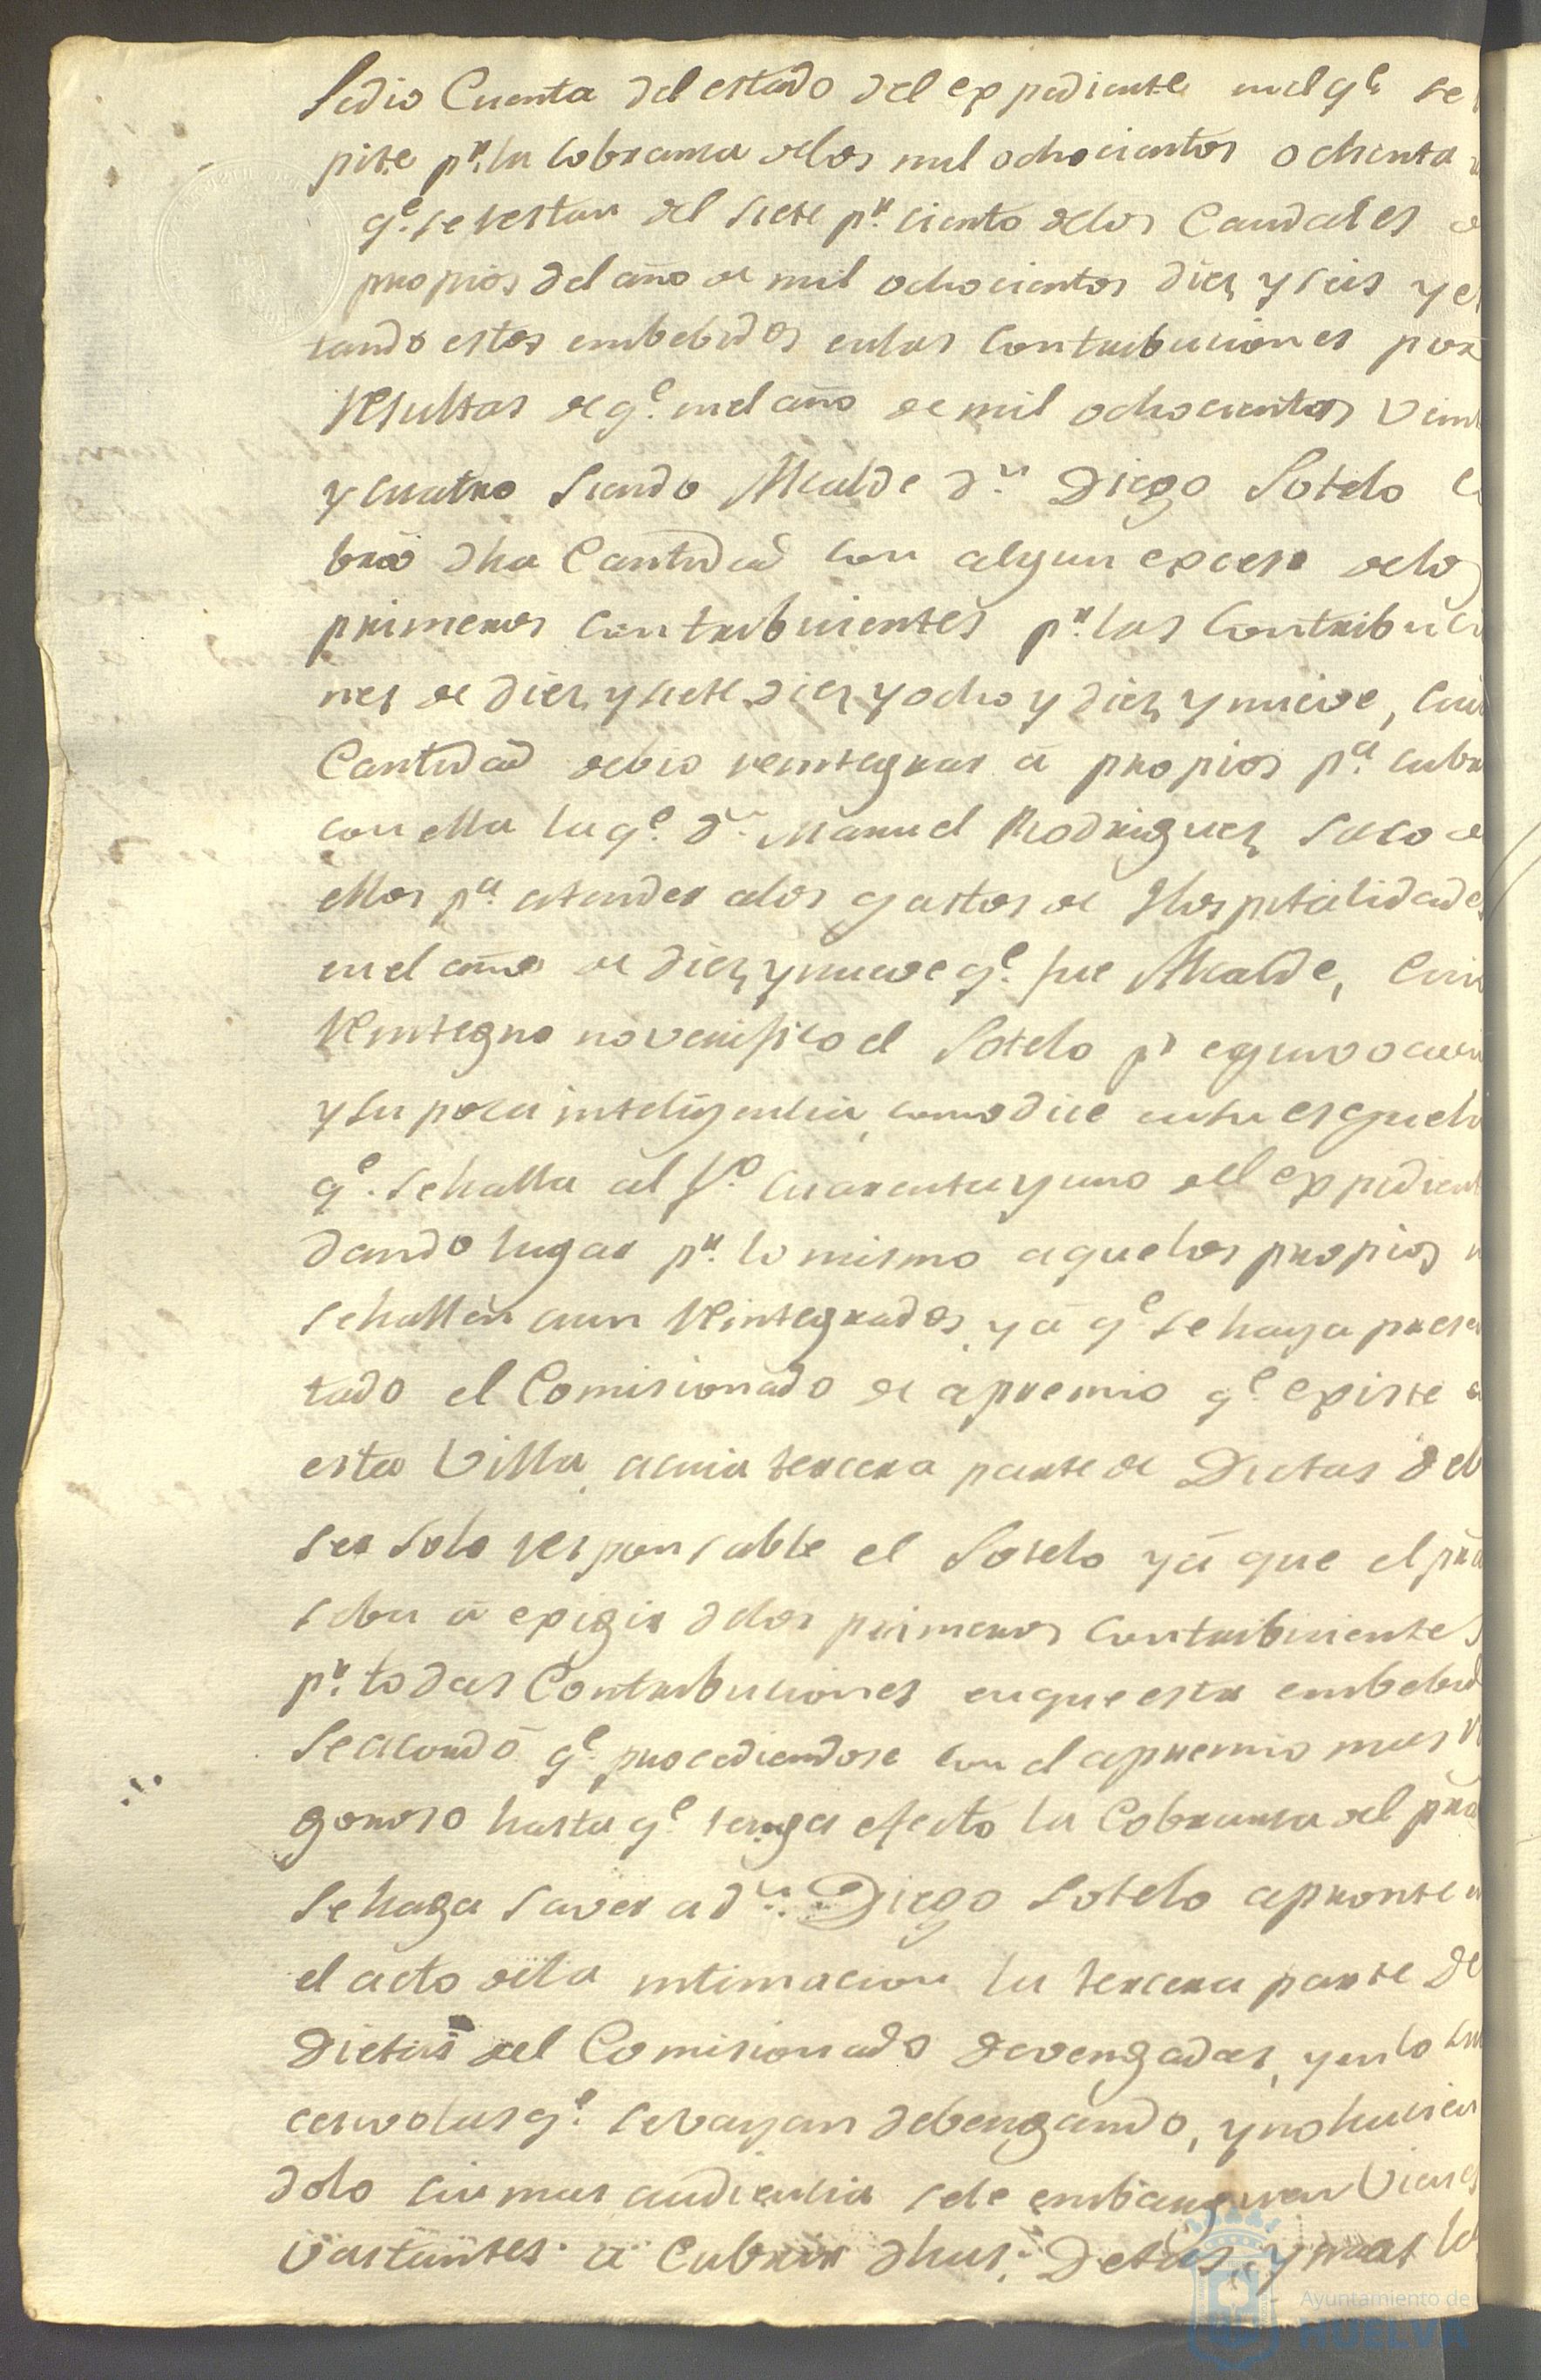 Sedio Cuenta del estado del expediente enel qe se
pite pr. la cobranza delos mil ochocientos ochenta
qe. se restan del siete pr. ciento delos Caudales
propios del año de mil ochocientos diez y seis y es
tando estos embebidos enlas Contribuciones por
resultas de qe. enel año de mil ochocientos veint
y cuatro siendo Alcalde dn. Diego Sotelo co
bró dha Cantidad con algun exceso delos
primeros contribuientes pr. las Contribucio
nes de diez y siete diez y ocho y diez y nueve, cuia
Cantidad debio reintegrar á propios pa. cubrir
con ella la qe. dn. Manuel Rodriguez saco de
ellos pa. atender alos gastos de Hospitalidades
enel año de diez y nueve qe. fue Alcalde, cuio
reintegro no verifico el Sotelo pr equivocacion
y su poca inteligencia, como dice ensu esquela
qe. se halla al fo. cuarenta y uno del expedient
dando lugar pr. lo mismo aquelos propios
se hallen aun reintegrados, y á qe se haya presen
tado el Comisionado de apremio qe. existe
esta Villa, acuia tercera parte de Dietas deb
ser solo responsable el Sotelo yá que el prál
se ba á exigir delos primeros contribuientes
pr. todas Contribuciones enque esta embebid
Se acordó qe. procediendose con el apremio mas ri
goroso hasta qe. tenga efecto la Cobranza del prál
se haga saver a dn. Diego Sotelo apronte en
el acto dela intimacion la tercera parte de
Dietas del Comisionado devengadas, y en lo su
cesivo las qe. se vayan debengando, y no hacien
dolo sin mas audiencia se le embarguen Vienes
vastantes á Cubrir dhas. Dietas, y mas los
Ayuntamiento de
HUELVA